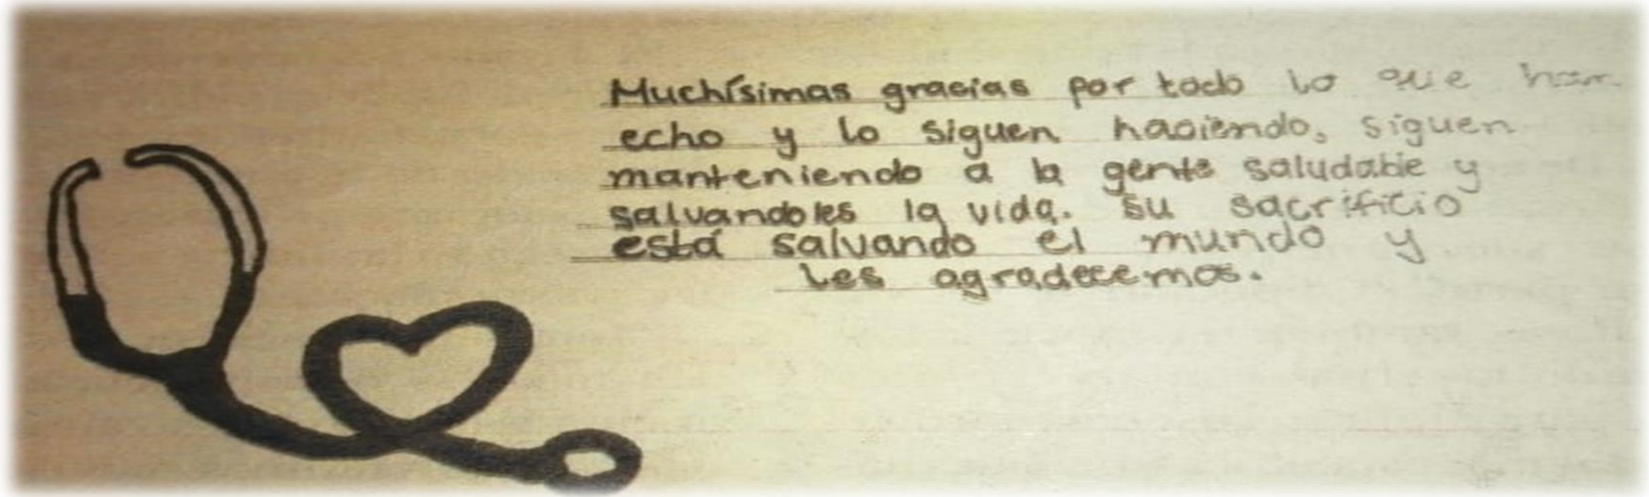 Muchísimas gracias por todo lo que han
echo y lo siguen haciendo, siguen
manteniendo a la gente saludable y
salvandoles la vida. su sacrificio
está salvando el mundo y
les agradecemos.